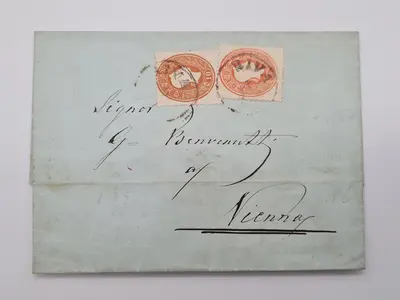 RIVA
Signor
G. Benvenuti
a/
Vienna